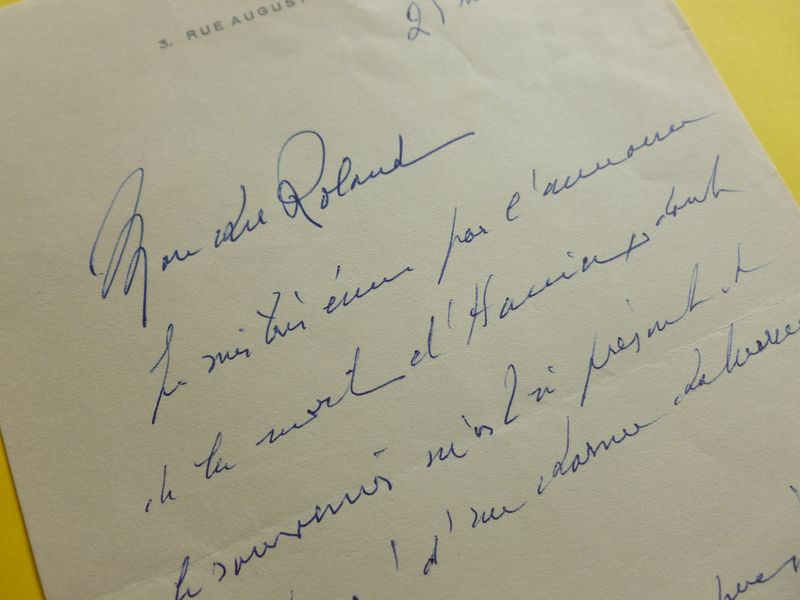 3. RUE AUGUST
Mon cher Roland
Je suis très ému par l'annonce
de la mort d' dont
le souvenir m'est si présent et
d'un charme